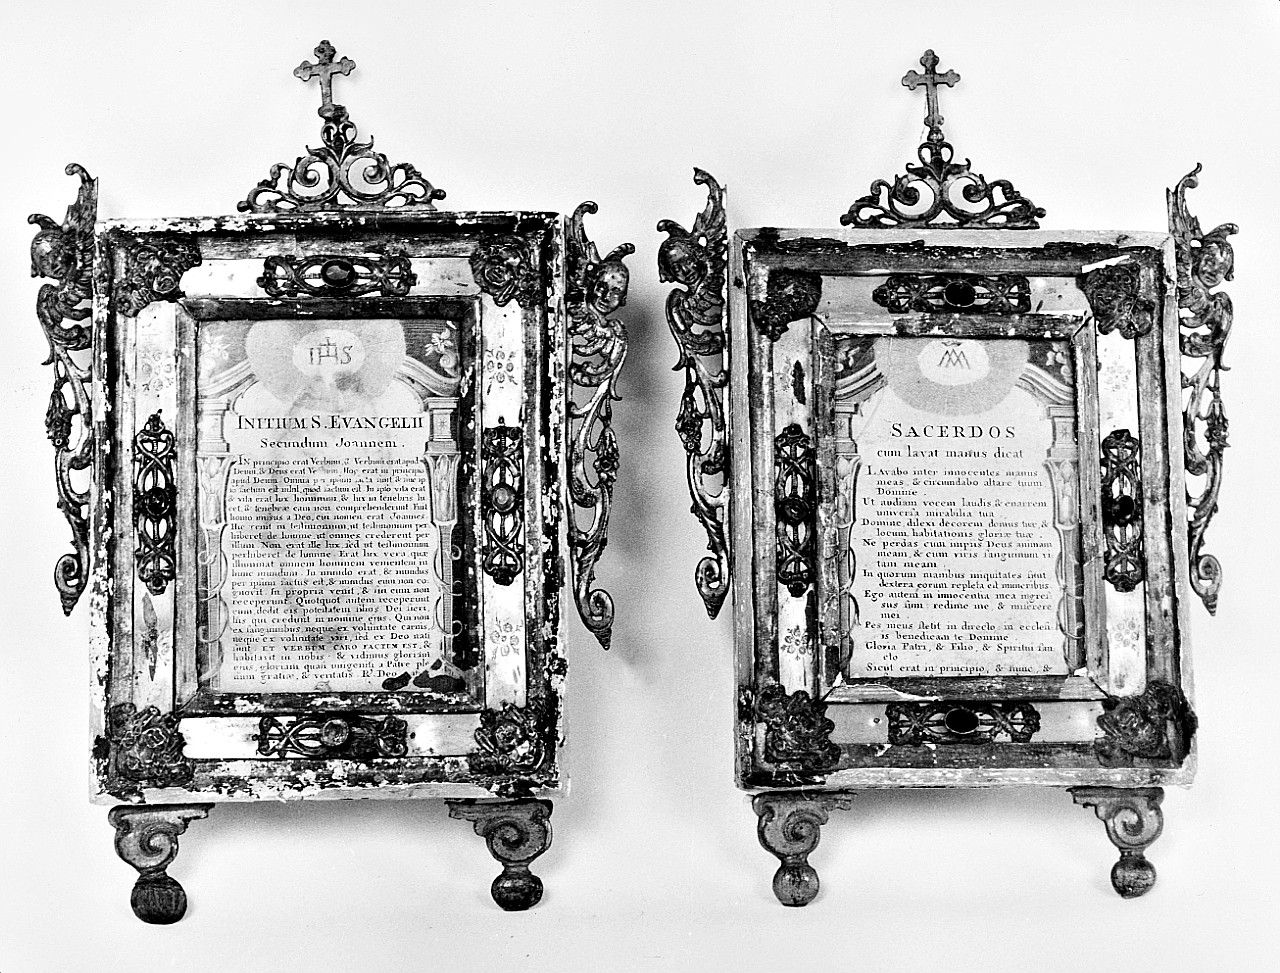 IHS
INITIUM S. EVANGELII
Secundum Joannem.
IN principio erat Verbum, & Verbum erat apud
Deum, & Deus erat Verbum. Hoc erat in principio
apud Deum. Omnia per ipsum facta sunt, & sine ip
so factum est nihil, quod factum est. In ipso vita erat
& vita erat lux hominum, & lux in tenebris lu
cet, & tenebræ eam non comprehenderunt. Fuit
homo missus a Deo, cui nomen erat Joannes
Hic venit in testimonium, ut testimonium per
hiberet de lumine, ut omnes crederent per
illum. Non erat ille lux, sed ut testimonium
perhiberet de lumine. Erat lux vera, quæ
illuminat omnem hominem venientem in
hunc mundum. In mundo erat, & mundus
per ipsum factus est, & mundus eum non co-
gnovit. In propria venit, & sui eum non
receperunt. Quotquot autem receperunt
eum, dedit eis potestatem filios Dei fieri,
his qui credunt in nomine ejus. Qui non
ex sanguinibus, neque ex voluntate carnis,
neque ex voluntate viri, sed ex Deo nati
sunt. ET VERBUM CARO FACTUM EST, &
habitavit in nobis. & vidimus gloriam
ejus, gloriam quasi unigeniti a Patre ple
num gratiæ, & veritatis. R. Deo
SACERDOS
cum lavat manus dicat
Lavabo inter innocentes manus
meas, & circundabo altare tuum
Domine.
Ut audiam vocem laudis, & enarrem
universa mirabilia tua.
Domine, dilexi decorem domus tuæ, &
locum habitationis gloriæ tuæ.
Ne perdas cum impiis Deus animam
meam, & cum viris sanguinum vi
tam meam.
In quorum manibus iniquitates sunt
dextera eorum repleta est muneribus
Ego autem in innocentia mea ingres
sus sum: redime me, & miserere
mei.
Pes meus stetit in directo, in ecclesi
is benedicam te Domine.
Gloria Patri, & Filio, & Spiritui san
cto
Sicut erat in principio, & nunc, &